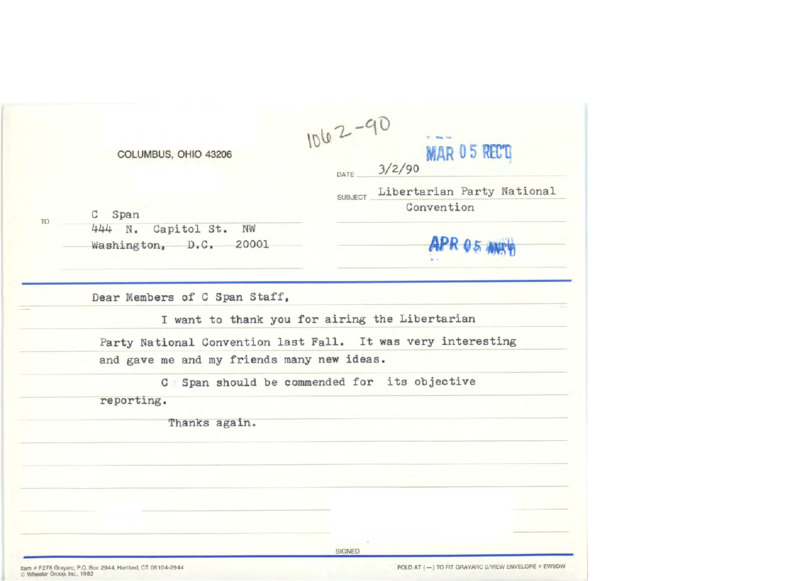 1062-90
COLUMBUS, OHIO 43206
MAR 05 REC'D
DATE 3/2/90
SUBJECT Libertarian Party National
Convention
TO
C Span
444 N. Capitol St. NW
Washington, D.C. 20001
APR 05 ANS'D
Dear Members of C Span Staff,
I want to thank you for airing the Libertarian
Party National Convention last Fall. It was very interesting
and gave me and my friends many new ideas.
C Span should be commended for its objective
reporting.
Thanks again.
SIGNED
Item # F276 Grayarc, P.O. Box 2944, Hartford, CT 06104-2944
© Wheeler Group, Inc., 1982
FOLD AT (—) TO FIT GRAYARC 2/VIEW ENVELOPE # EW9DW